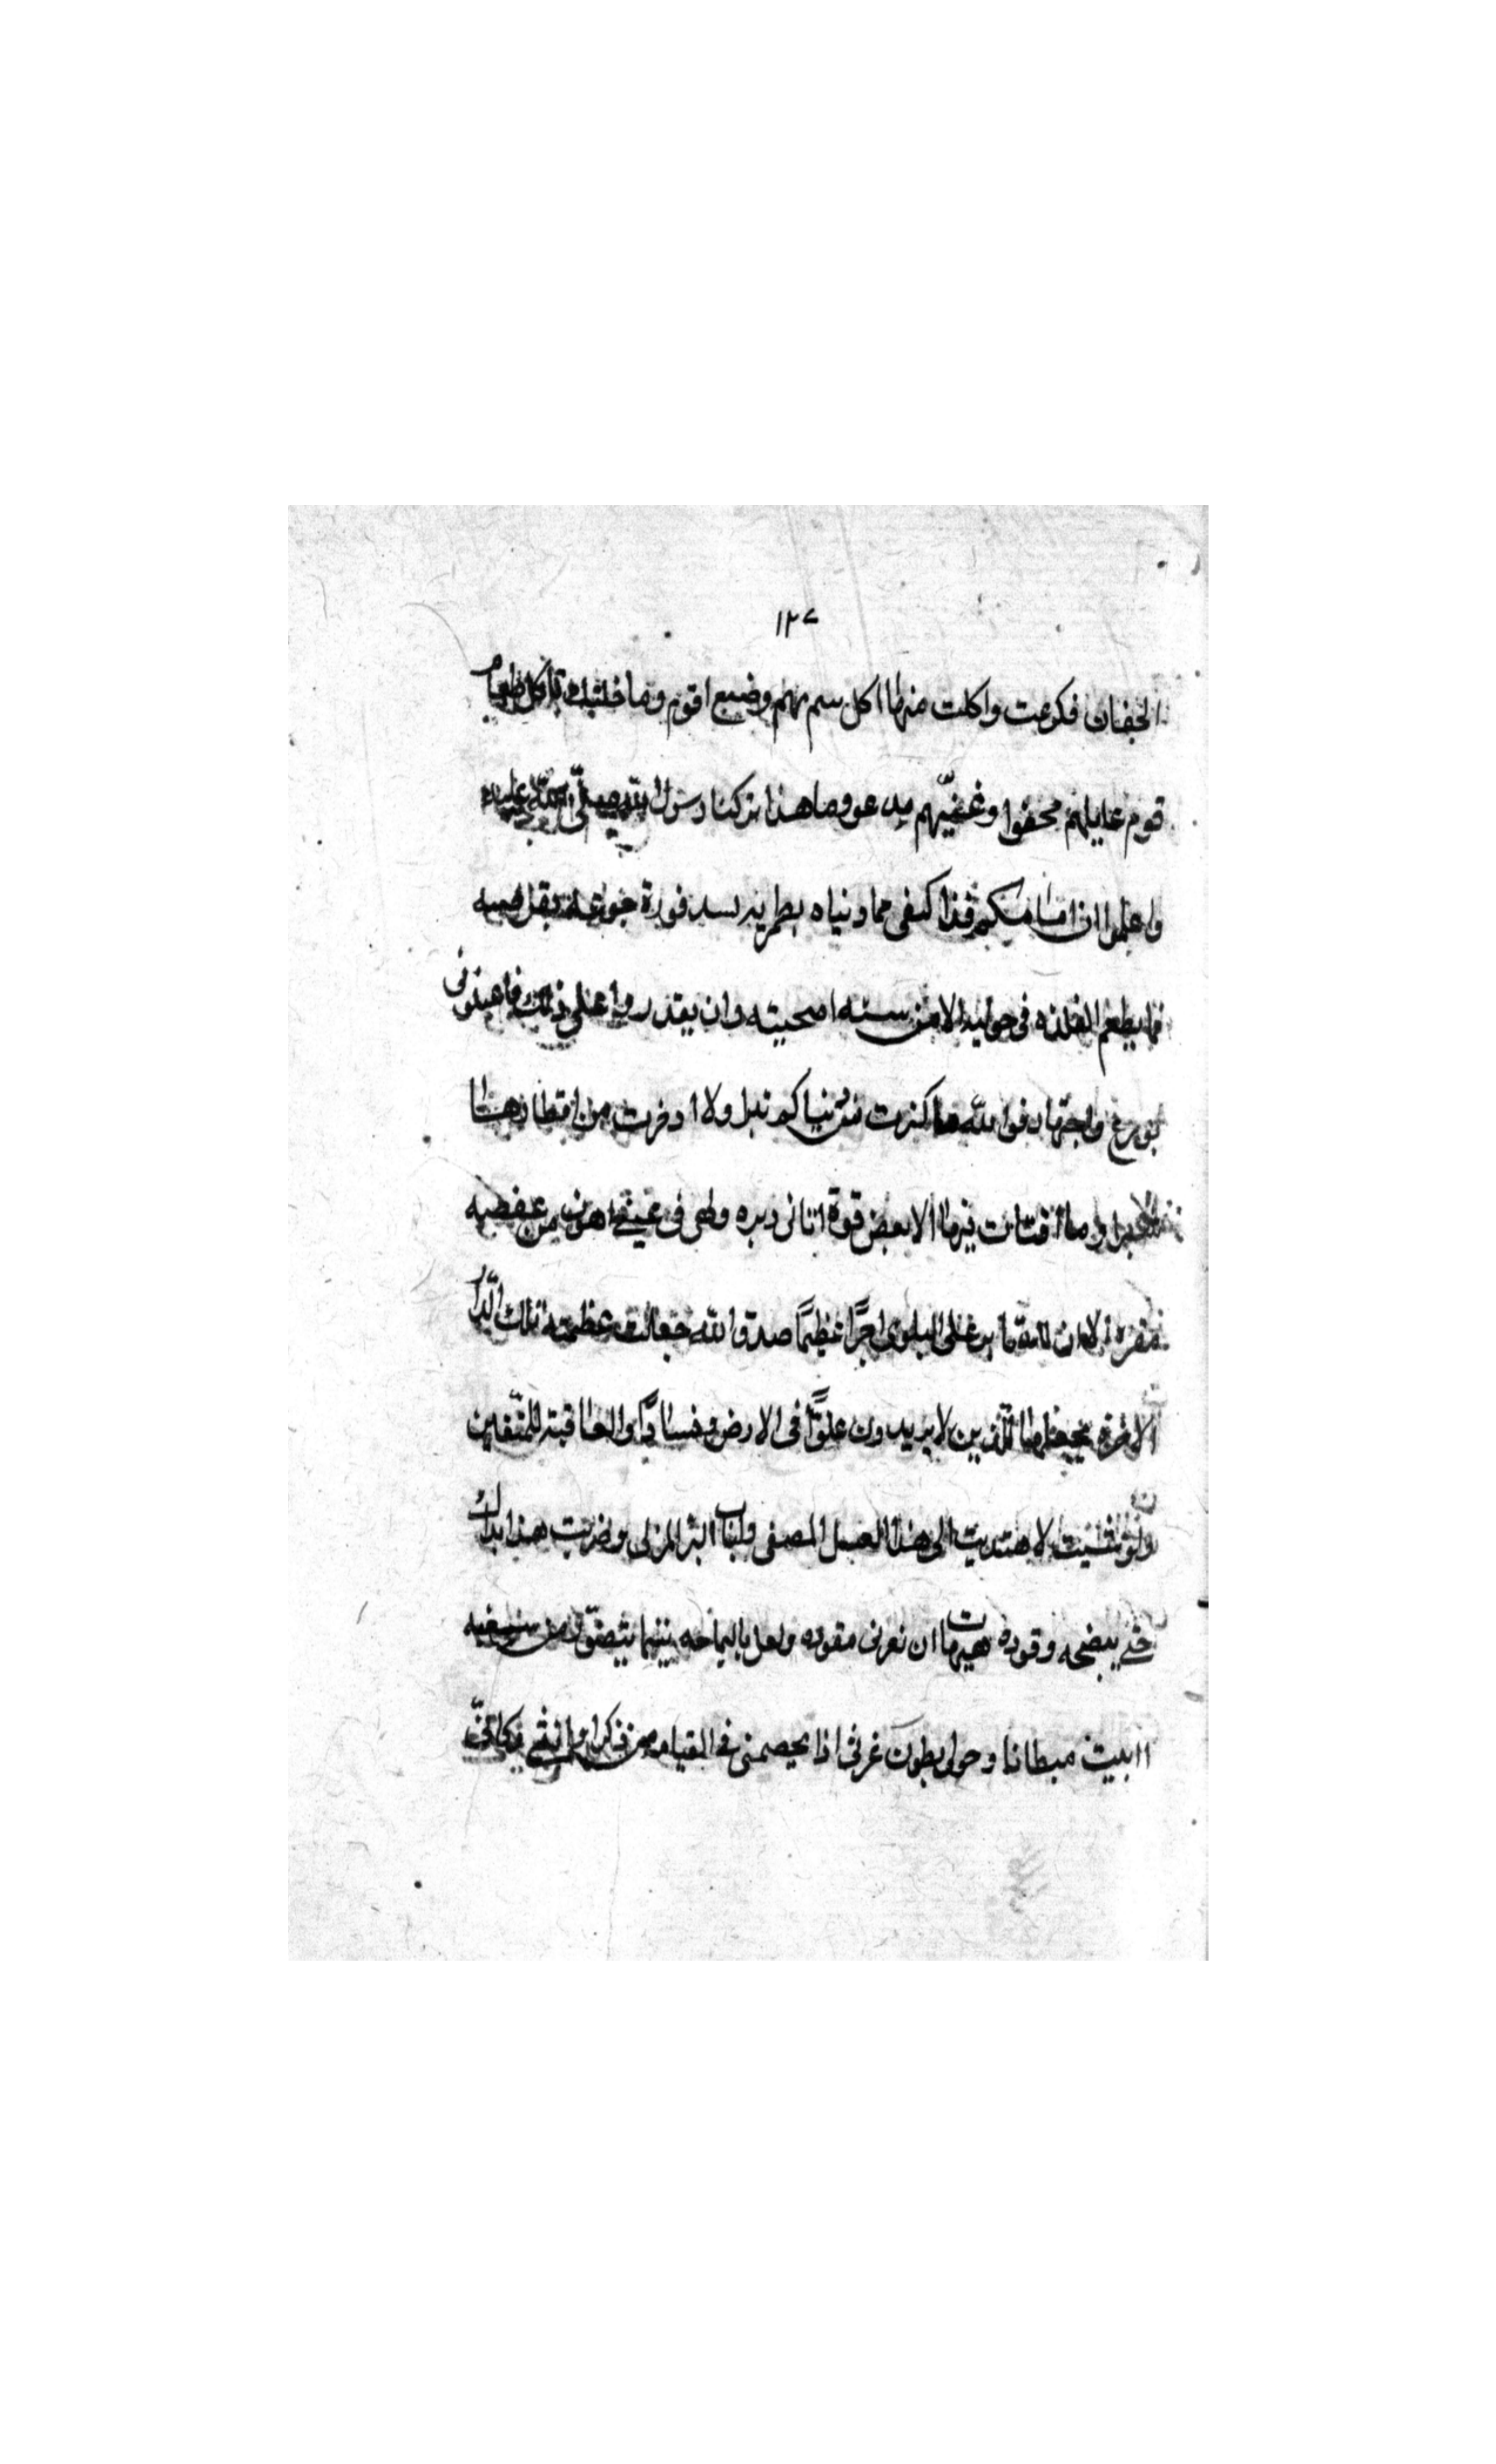 ١٢٧
الجفان فكرعت واكلت منها اكل سم نهم وضبع اقوم وما خلتك تاكل طعام
قوم عايلهم محفوا وغنيّهم مدعو وما هذا تركنا رسول الله صلّى الله عليه
واعلموا ان امامكم قد اكتفى مما دنياه بطمريه يسد فورة جوعه بقرصيه
فما يطعم الفلذه فى حوليه الا من سنه اضحيته وان يقدروا على ذلك فاعينونى
بورع واجتهاد فوالله ما كنزت من دنياكم تبرا ولا ادخرت من اقطارها
شبرا وما اقتات منها الا بعض قوة اتان دبره ولهى فى عينى اهون من عفصه
مقره الا ان على البلوى اجرًا عظيمًا صدق الله جعالت عظمته تلك الدّار
الاخرة نجعلها للّذين لا يريدون علوًّا فى الارض وفسادًا والعاقبة للمتّقين
ولو شئت لاهتديت الى هذا العسل المصفى ولباب البر المزلى وضربت هذا بذاك
حتى ينضجه وقوده هيهات ان نعرنى مقوده ولعل باليمامه يتيما يتضوّر من سغبه
ا ابيت مبطانا وحولى بطون غرثى اذا يخصمنى فى القيامه من ذكر وانثى